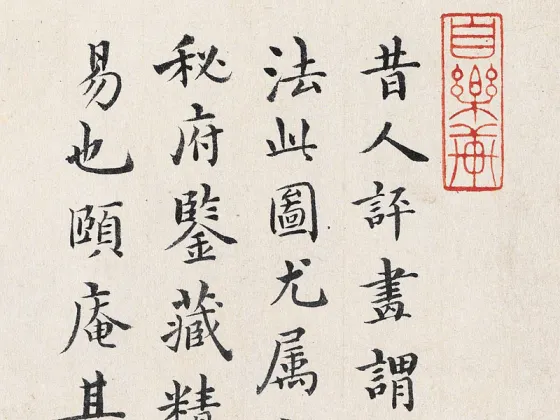 自樂菴
昔人評畫謂
法此圖尤属
秘府鑒藏精
易也頤庵其